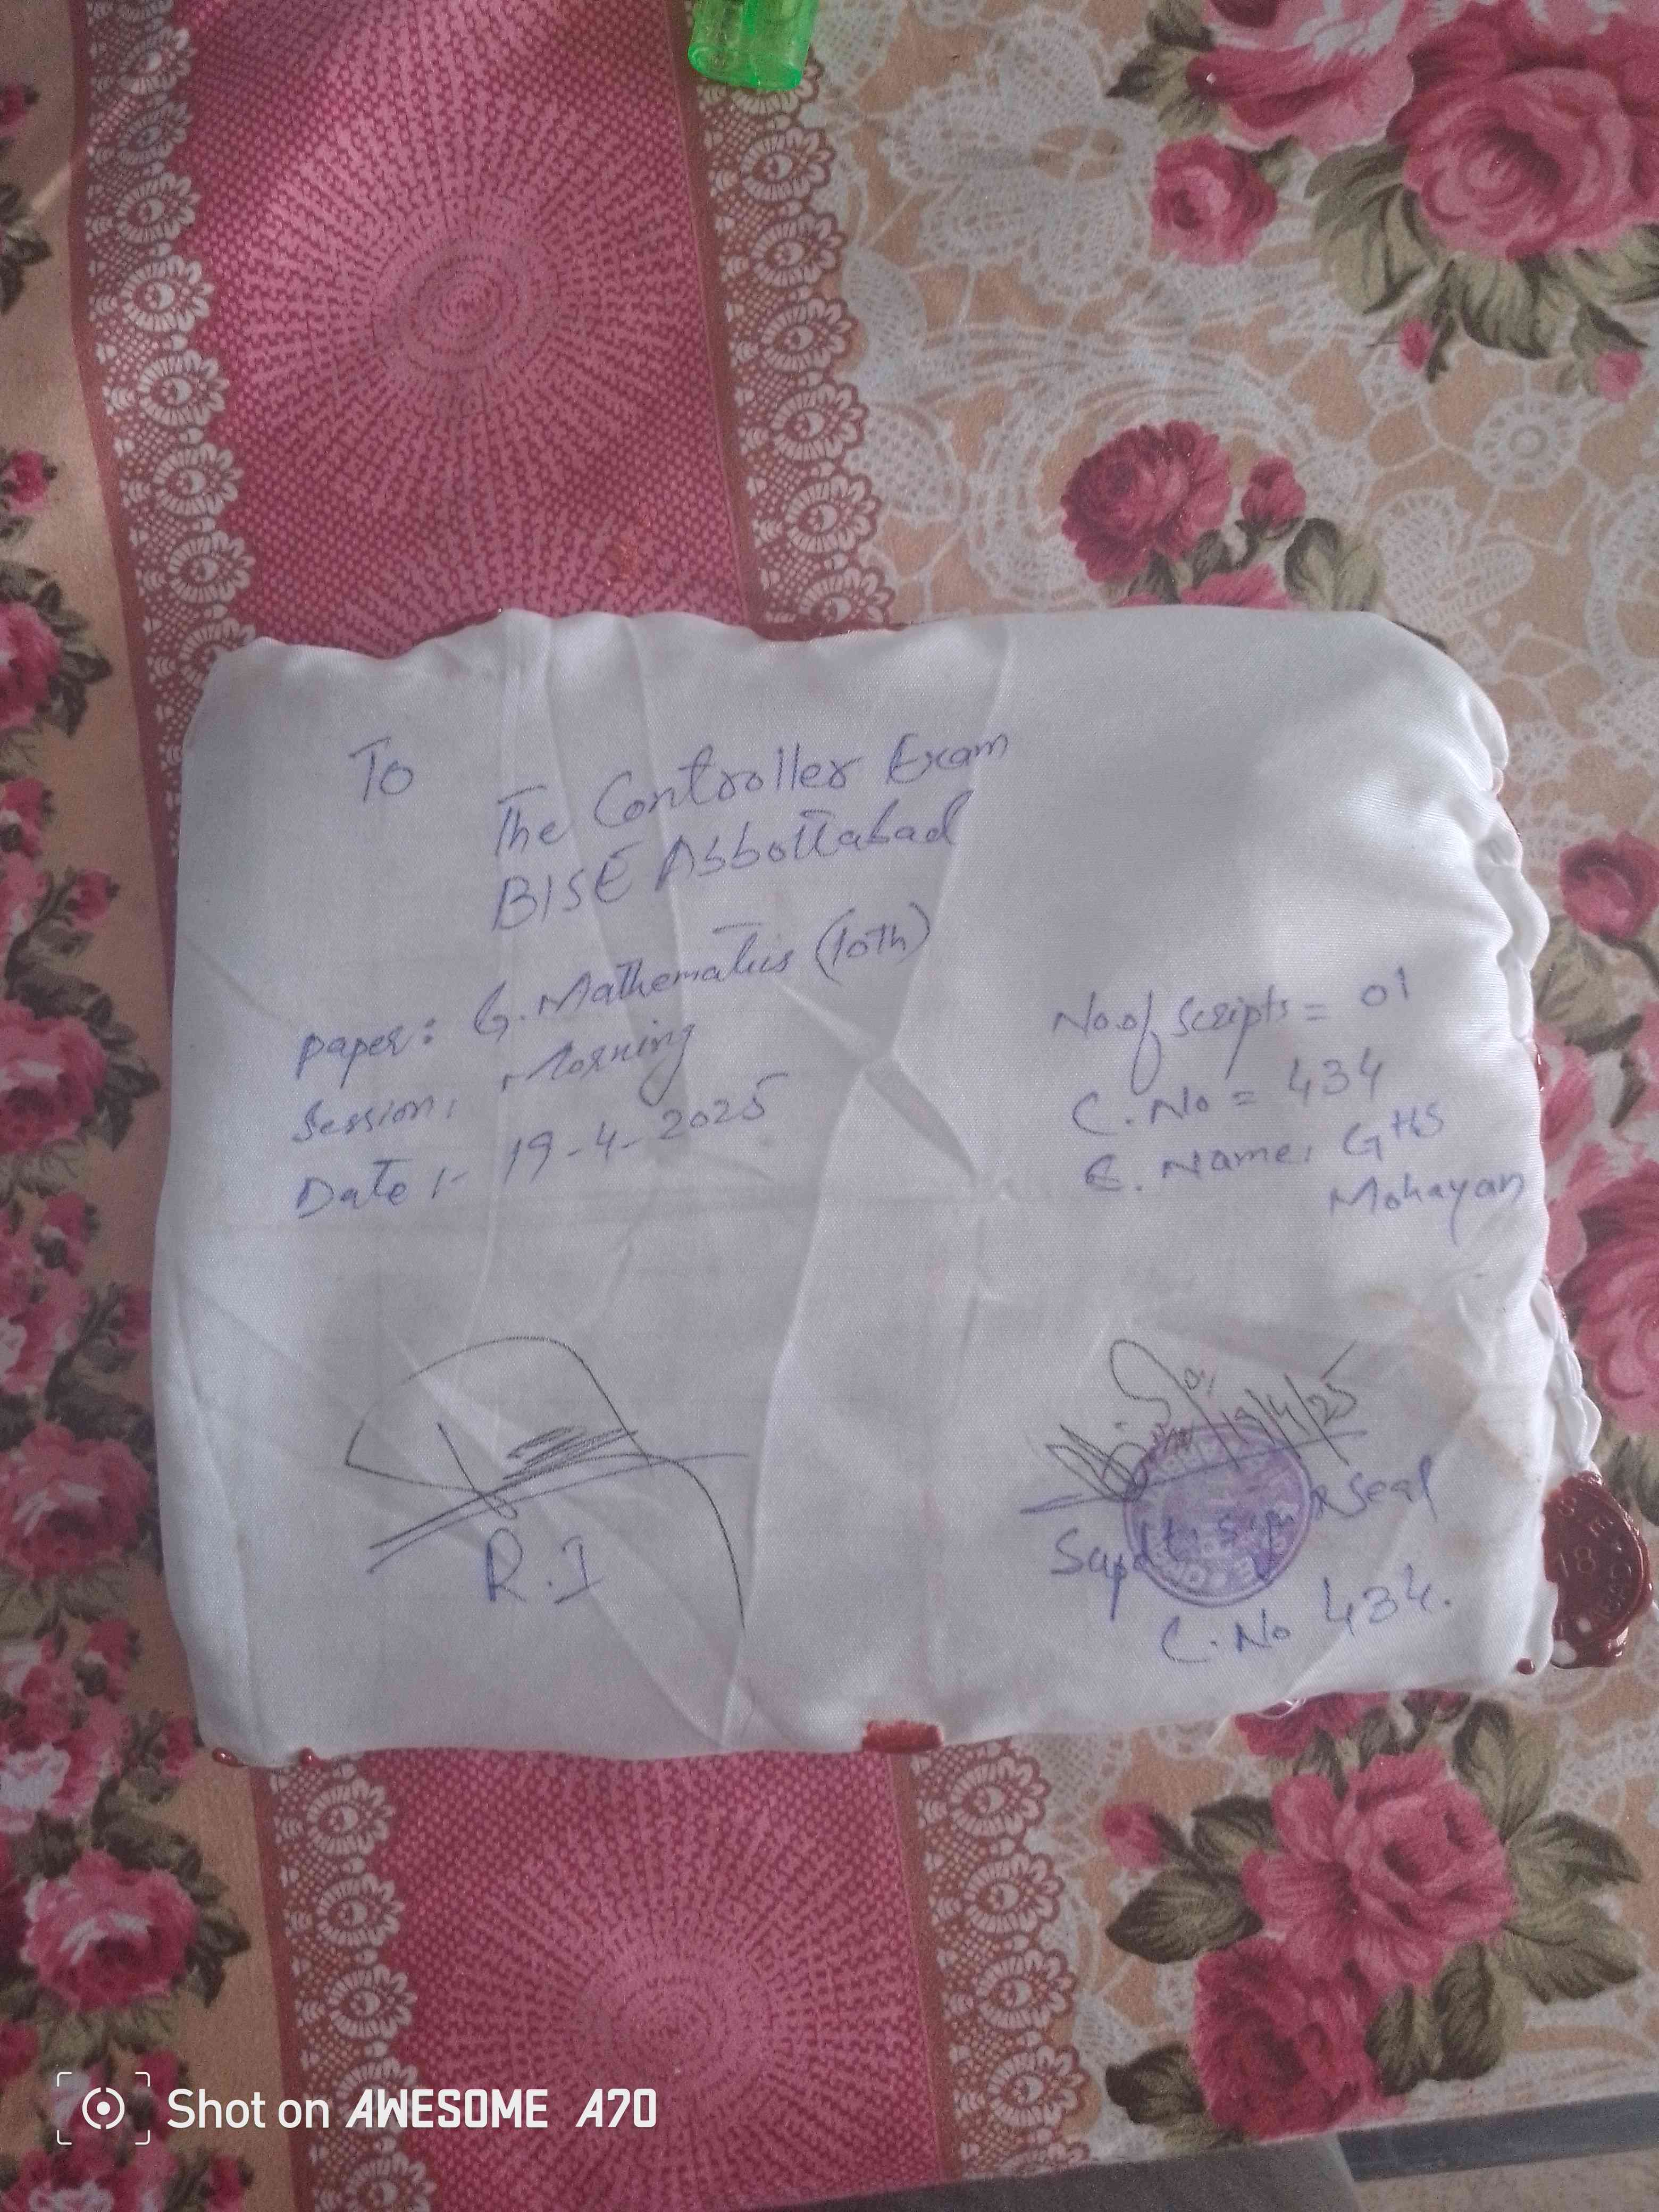 To
The Controller Exam
BISE Abbottabad
Paper: G. Mathematics (10th)
Session: Morning
Date :- 19-4-2025
No of Scripts = 01
C. No = 434
C. Name: GHS
Mohayan
R.I
19/4/25
Supdt: sign & Seal
C. No 434.
78
Shot on AWESOME A70